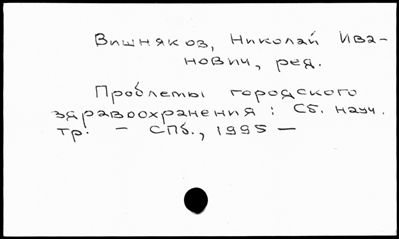 Вишняков, Николай Ива-
нович, ред.
Проблемы городского
здравоохранения : Сб. науч.
тр. – СПб., 1995 —